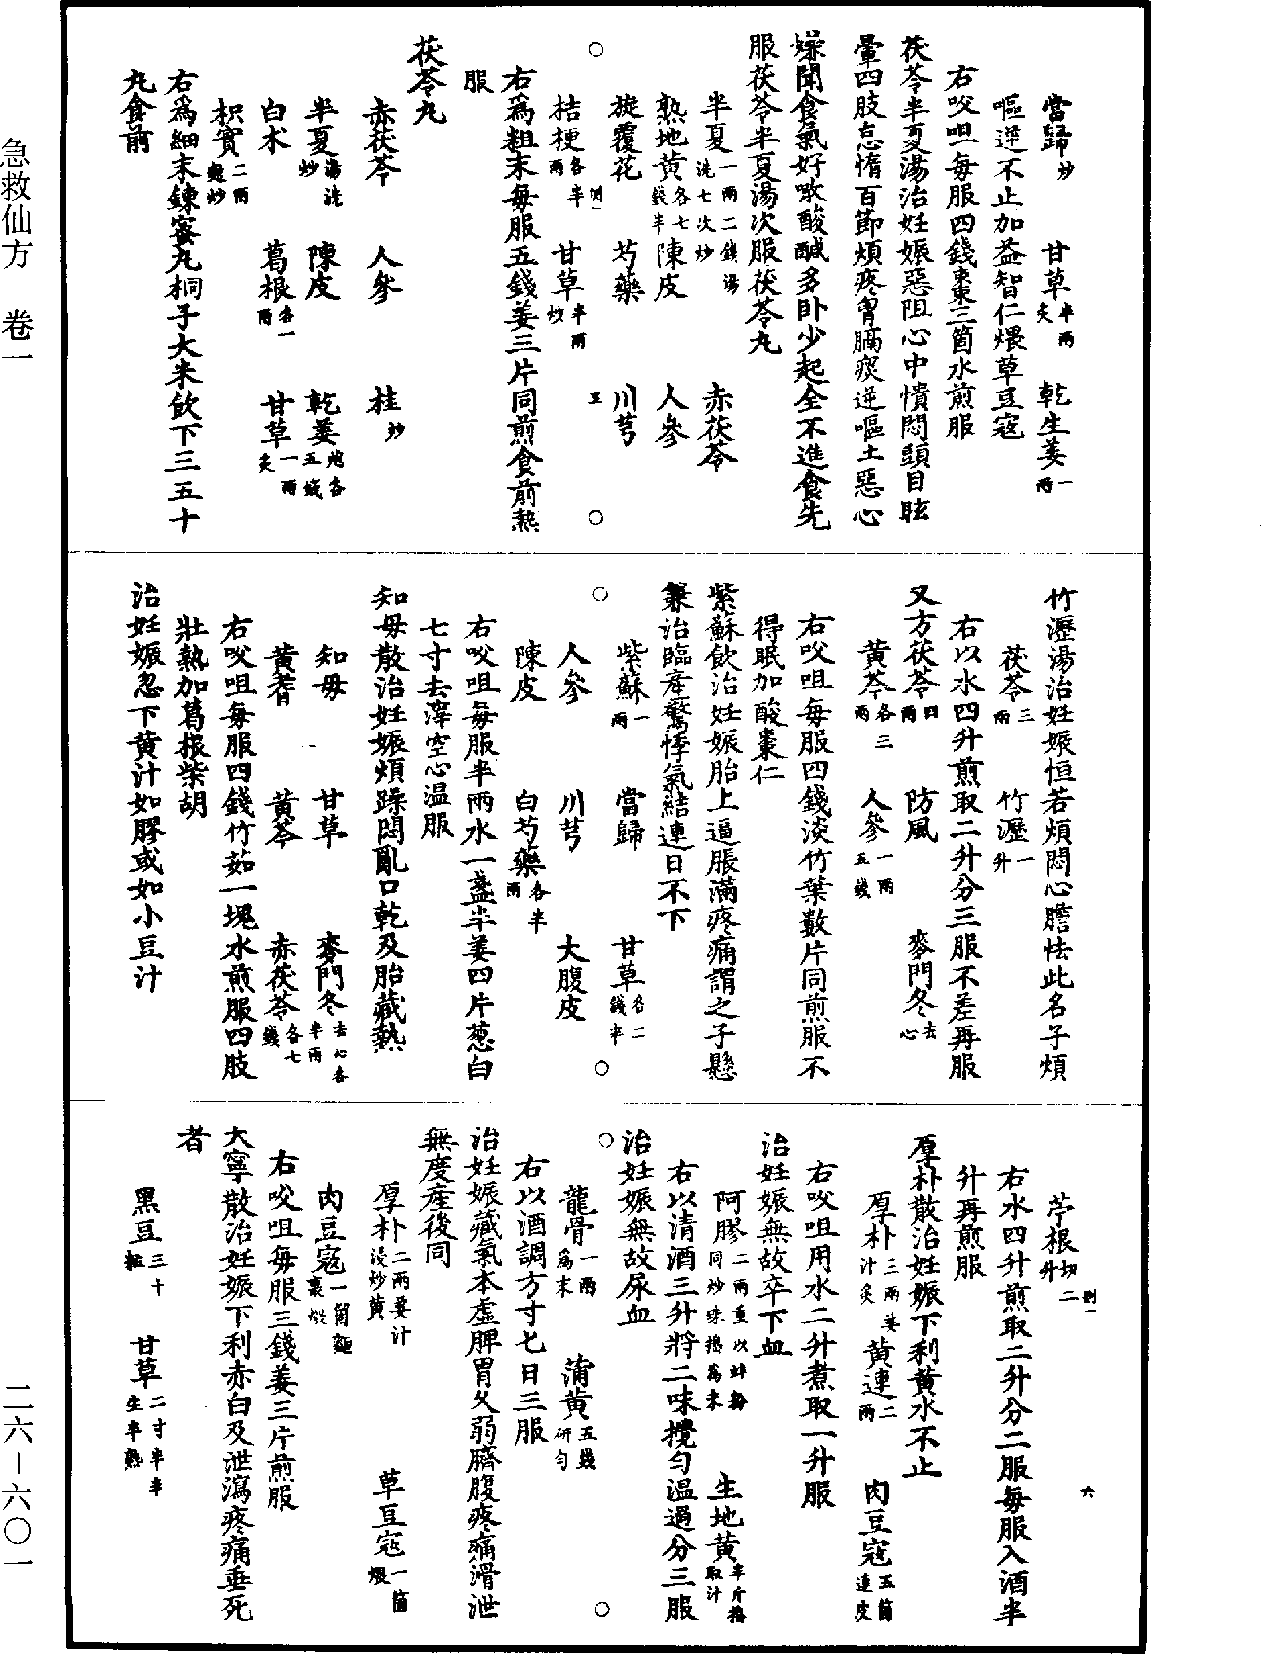 當歸炒　甘草半兩炙　乾生姜一兩
嘔逆不止加益智仁煨草豆蔻
右㕮咀每服四錢棗三箇水煎服
茯苓半夏湯治妊娠惡阻心中憒悶頭目眩
暈四肢怠惰百節煩疼胷膈痰逆嘔土惡心
嫌聞食氣好噉酸醎多卧少起全不進食先
服茯苓半夏湯次服茯苓丸
半夏一兩二錢湯洗七次炒　赤茯苓
熟地黃各七錢半　陳皮　人參
旋覆花　芍藥　川芎
桔梗各半兩　甘草半兩炒
右爲粗末每服五錢姜三片同煎食前熱
服
茯苓丸
赤茯苓　人參　桂炒
半夏湯洗炒　陳皮　乾姜炮各五錢
白术　葛根各一兩　甘草一兩炙
枳實二兩麩炒
右爲細末鍊蜜丸桐子大米飲下三五十
丸食前
竹瀝湯治妊娠恒若煩悶心膽怯此名子煩
茯苓三兩　竹瀝一升
右以水四升煎取二升分三服不差再服
又方茯苓四兩　防風　麥門冬去心
黃芩各三兩　人參一兩五錢
右㕮咀每服四錢淡竹葉數片同煎服不
得眠加酸棗仁
紫蘇飲治妊娠胎上逼脹滿疼痛謂之子懸
兼治臨產驚悸氣結連日不下
紫蘇一兩　當歸　甘草各二錢半
人參　川芎　大腹皮
陳皮　白芍藥各半兩
右㕮咀每服半兩水一盞半姜四片葱白
七寸去滓空心温服
知母散治妊娠煩躁悶亂口乾及胎藏熱
知母　甘草　麥門冬去心各半兩
黃耆　黃芩　赤茯苓各七錢
右㕮咀每服四錢竹茹一塊水煎服四肢
壯熱加葛根柴胡
治妊娠忽下黃汁如膠或如小豆汁
苧根切二升
右水四升煎取二升分二服每服入酒半
升再煎服
厚朴散治妊娠下利黃水不止
厚朴三兩姜汁炙　黃連二兩　肉豆蔻五箇連皮
右㕮咀用水二升煮取一升服
治妊娠無故卒下血
阿膠二兩重以蚌粉同炒珠搗爲末　生地黃半斤搗取汁
右以清酒三升將二味攪匀温過分三服
治妊娠無故尿血
龍骨一兩爲末　蒲黃五錢研匀
右以酒調方寸七日三服
治妊娠藏氣本虛脾胃久弱臍腹疼痛滑泄
無度產後同
厚朴二兩姜汁浸炒黃　草豆蔻一箇煨
肉豆蔻一箇麵裹煨
右㕮咀每服三錢姜三片煎服
大寧散治妊娠下利赤白及泄瀉疼痛垂死
者
黑豆三十粒　甘草二寸半半生半熟
六
急救仙方　卷一
二六—六〇一